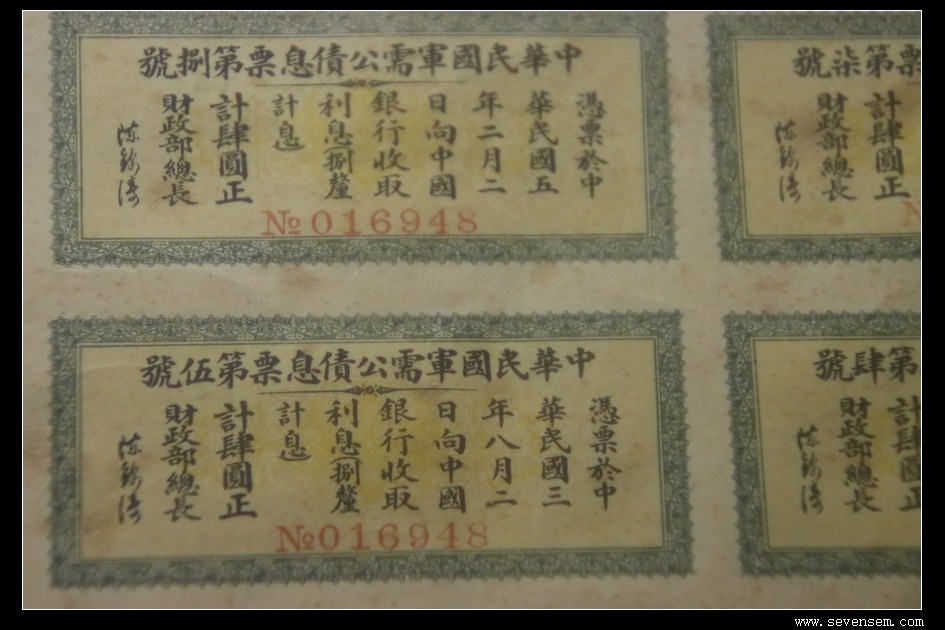 中華民國軍需公債息票第捌號
憑票於中
華民國五
年二月二
日向中國
銀行收取
利息捌釐
計息
計肆圓正
財政部總長
陳錦濤
№016948
第柒號
計肆圓正
財政部總長
陳錦濤
中華民國軍需公債息票第伍號
憑票於中
華民國三
年八月二
日向中國
銀行收取
利息捌釐
計息
計肆圓正
財政部總長
陳錦濤
№016948
第肆號
計肆圓正
財政部總長
陳錦濤
www.sevensem.com